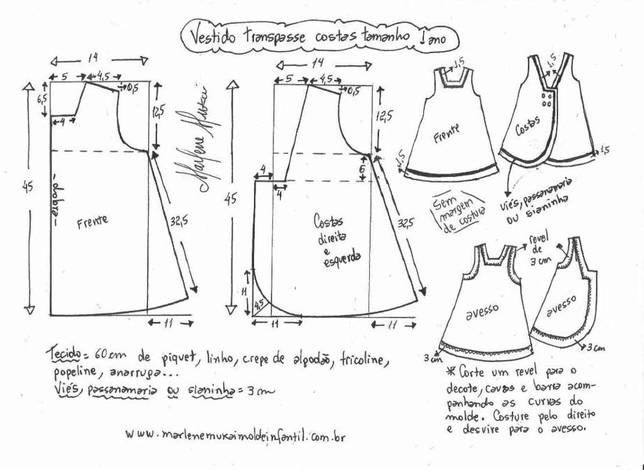 Vestido transpasse costas tamanho 1 ano
14
5
4,5
0,5
6,5
4
12,5
45
dobra
Frente
32,5
11
Marlene Mukai
14
5
4,5
0,5
12,5
6
4
4
45
Costas
direita
e
esquerda
32,5
11
4,5
11
11
1,5
Frente
1,5
1,5
Costas
1,5
Sem
margem
de costura
viés, passanamaria
ou sianinha
revel
de
3 cm
avesso
avesso
3 cm
3 cm
Tecido = 60 cm de piquet, linho, crepe de algodão, tricoline,
popeline, anarruga...
Viés, passanamaria ou sianinha = 3 cm
* Corte um revel para o
decote, cavas e barra acom-
panhando as curvas do
molde. Costure pelo direito
e desvire para o avesso.
www.marlenemukaimoldeinfantil.com.br